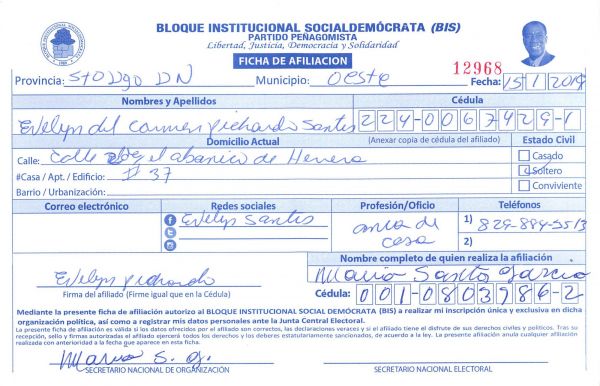 BLOQUE INSTITUCIONAL SOCIALDEMÓCRATA (BIS)
PARTIDO PEÑAGOMISTA
Libertad, Justicia, Democracia y Solidaridad
FICHA DE AFILIACION
12968
Provincia: Sto Dgo DN Municipio: Oeste Fecha: 15/1/2019
Nombres y Apellidos Cédula
Evelyn del Carmen Pichardo Santis 224-0067429-1
Domicilio Actual (Anexar copia de cédula del afiliado) Estado Civil
Calle: Calle el abanico de Herrera Casado
#Casa / Apt. / Edificio: # 37 Soltero
Barrio / Urbanización: Conviviente
Correo electrónico Redes sociales Profesión/Oficio Teléfonos
Evelyn Santis ama de casa 1) 829-884-5513
2)
Nombre completo de quien realiza la afiliación
Evelyn Pichardo Mario Santos Garcia
Firma del afiliado (Firme igual que en la Cédula) Cédula: 001-0803986-2
Mediante la presente ficha de afiliación autorizo al BLOQUE INSTITUCIONAL SOCIAL DEMÓCRATA (BIS) a realizar mi inscripción única y exclusiva en dicha
organización política, así como a registrar mis datos personales ante la Junta Central Electoral.
La presente ficha de afiliación es válida si los datos ofrecidos por el afiliado son correctos, las declaraciones veraces y si el afiliado tiene el disfrute de sus derechos civiles y políticos. Tras su
recepción, sello y firmas autorizadas el afiliado ejercerá todos los derechos y los deberes estatutariamente sancionados, de acuerdo a la ley. La presente afiliación anula cualquier afiliación
realizada con anterioridad a la fecha que aparece en esta ficha.
Mario S. G.
SECRETARIO NACIONAL DE ORGANIZACIÓN SECRETARIO NACIONAL ELECTORAL